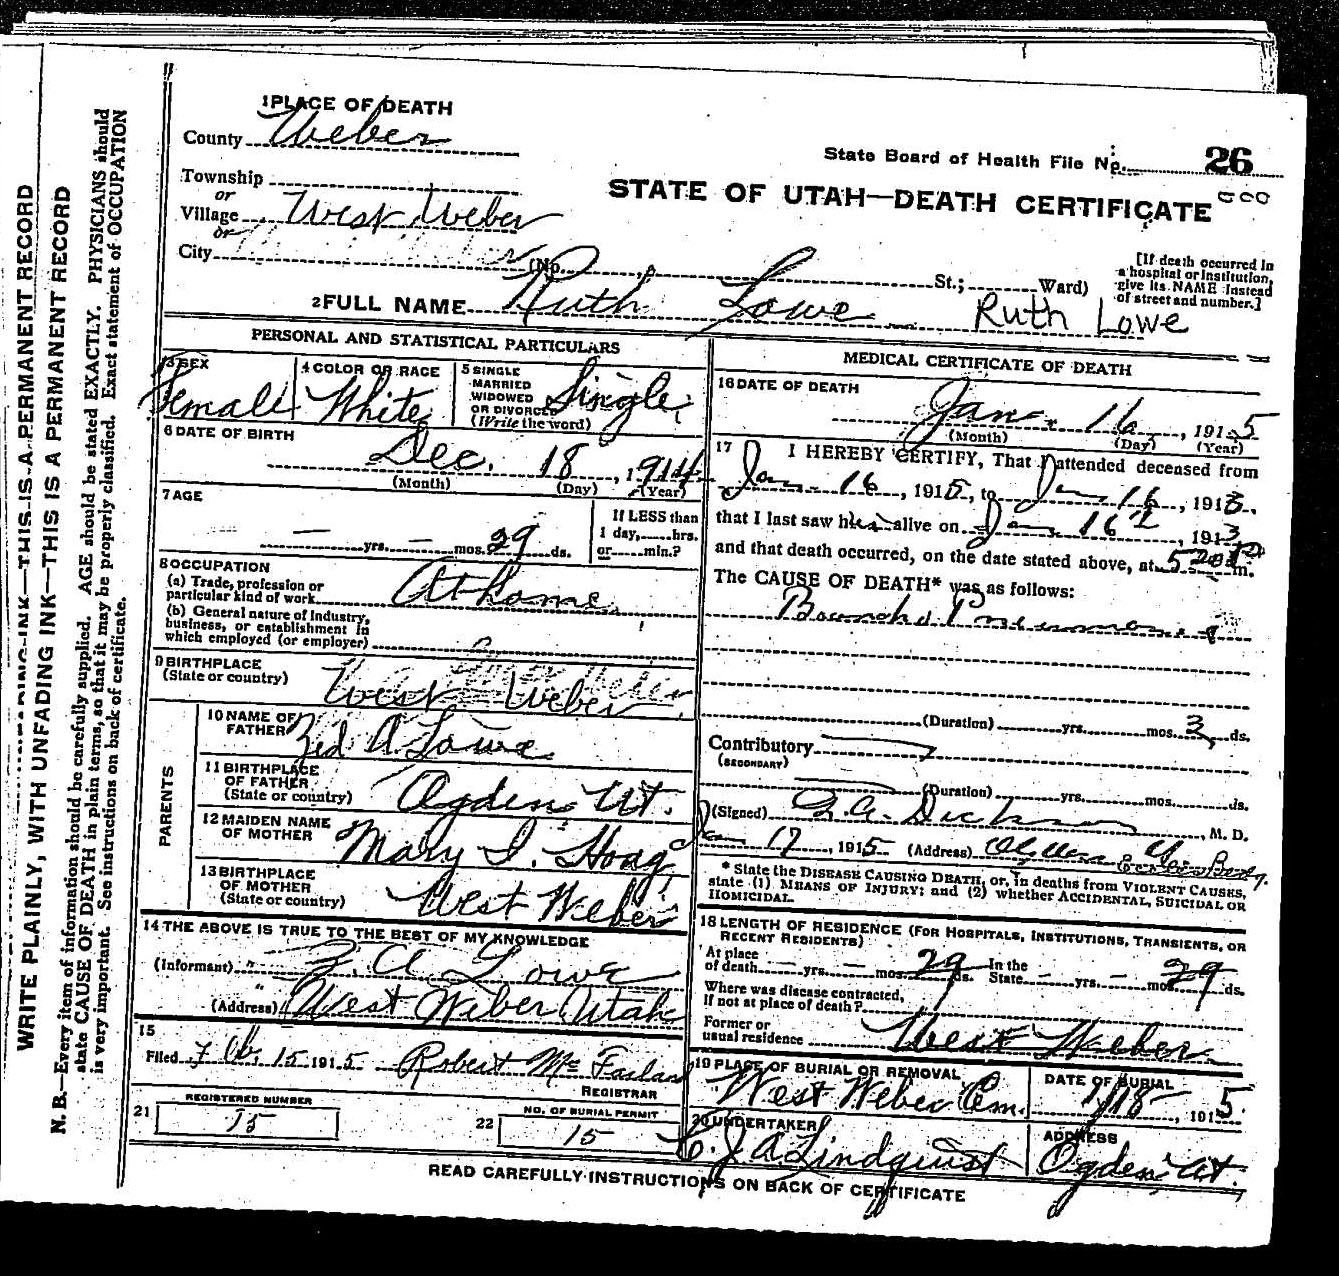 WRITE PLAINLY, WITH UNFADING INK—THIS IS A PERMANENT RECORD
N. B.—Every item of information should be carefully supplied. AGE should be stated EXACTLY. PHYSICIANS should
state CAUSE OF DEATH in plain terms, so that it may be properly classified. Exact statement of OCCUPATION
is very important. See instructions on back of certificate.
1 PLACE OF DEATH
County Weber
State Board of Health File No. 26
Township
or
Village West Weber
or
City
STATE OF UTAH—DEATH CERTIFICATE
(No. St.; Ward)
[If death occurred in
a hospital or institution,
give its NAME instead
of street and number.]
2 FULL NAME Ruth Lowe Ruth Lowe
PERSONAL AND STATISTICAL PARTICULARS
3 SEX Female
4 COLOR OR RACE White
5 SINGLE
MARRIED
WIDOWED
OR DIVORCED
(Write the word) Single
6 DATE OF BIRTH
Dec. 18, 1914
(Month) (Day) (Year)
7 AGE
— yrs. — mos. 29 ds.
If LESS than
1 day, hrs.
or min.?
8 OCCUPATION
(a) Trade, profession or
particular kind of work At home
(b) General nature of Industry,
business, or establishment in
which employed (or employer)
9 BIRTHPLACE
(State or country) West Weber
PARENTS
10 NAME OF
FATHER Zed A Lowe
11 BIRTHPLACE
OF FATHER
(State or country) Ogden Ut.
12 MAIDEN NAME
OF MOTHER Mary I. Hogg
13 BIRTHPLACE
OF MOTHER
(State or country) West Weber
14 THE ABOVE IS TRUE TO THE BEST OF MY KNOWLEDGE
(Informant) Z. A Lowe
(Address) West Weber Utah
15
Filed Feb. 15 1915 Robert McFarland
REGISTRAR
21 REGISTERED NUMBER
15
22 NO. OF BURIAL PERMIT
15
MEDICAL CERTIFICATE OF DEATH
16 DATE OF DEATH
Jan. 16, 1915
(Month) (Day) (Year)
17 I HEREBY CERTIFY, That I attended deceased from
Jan 16, 1915, to Jan 16, 1913.
that I last saw her alive on Jan 16, 1913
and that death occurred, on the date stated above, at 5 20 P m.
The CAUSE OF DEATH* was as follows:
Broncho Pneumonia
(Duration) yrs. mos. 3 ds.
Contributory
(SECONDARY)
(Duration) yrs. mos. ds.
(Signed) Dickson, M. D.
Jan 17, 1915 (Address)
* State the DISEASE CAUSING DEATH, or, in deaths from VIOLENT CAUSES,
state (1) MEANS OF INJURY; and (2) whether ACCIDENTAL, SUICIDAL OR
HOMICIDAL.
18 LENGTH OF RESIDENCE (FOR HOSPITALS, INSTITUTIONS, TRANSIENTS, OR
RECENT RESIDENTS)
At place
of death — yrs. — mos. 29 ds. In the
State — yrs. — mos. 29 ds.
Where was disease contracted,
if not at place of death?
Former or
usual residence West Weber
19 PLACE OF BURIAL OR REMOVAL
West Weber Cem.
DATE OF BURIAL
1/18, 1915
20 UNDERTAKER
C. J. A. Lindquist
ADDRESS
Ogden Ut.
READ CAREFULLY INSTRUCTIONS ON BACK OF CERTIFICATE